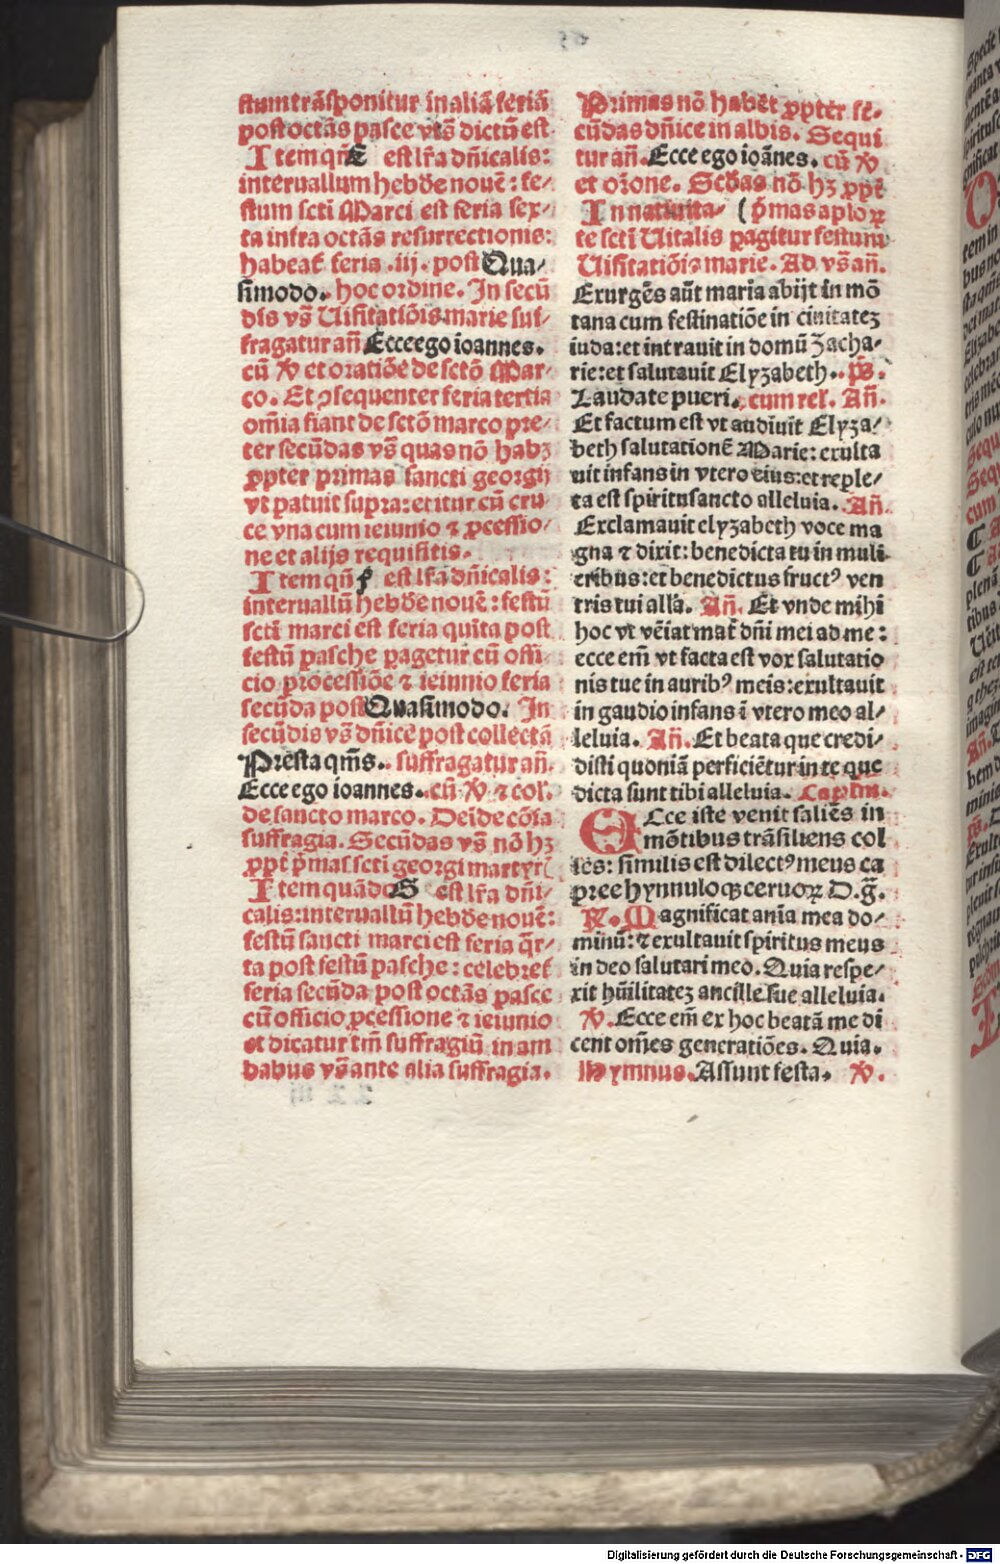 stum trāsponitur in aliā feriā
post octās pasce vts̄ dictū est
Item qn̄ E est lr̄a dn̄icalis:
interuallum hebd̄e nouē: fe⸗
stum scti Marci est feria sex⸗
ta infra octās resurrectionis:
habeat̄ feria .iij. post Qua⸗
simodo. hoc ordine. In secū
dis vs̄ Uisitatiōis marie suf⸗
fragatur an̄ Ecce ego ioannes.
cū ℣ et oratiōe de sctō Mar⸗
co. Et ꝯsequenter feria tertia
om̄ia fiant de sctō marco pre⸗
ter secūdas vs̄ quas nō habꝫ
ꝓpter primas sancti georgij
vt patuit supra: et itur cū cru⸗
ce vna cum ieiunio ⁊ ꝓcessio⸗
ne et alijs requisitis.
Item qn̄ f est lr̄a dn̄icalis:
interuallū hebd̄e nouē: festū
scti marci est feria quīta post
festū pasche pagetur cū offi⸗
cio processiōe ⁊ ieiunio feria
secūda post Quasimodo. In
secūdis vs̄ dn̄ice post collectā
Presta qm̄s. suffragatur an̄.
Ecce ego ioannes. cū ℣ ⁊ col.
de sancto marco. Deīde cōia
suffragia. Secūdas vs̄ nō hꝫ
ꝓpt̄ p̄mas scti georgi martyrī
Item quādo G est lr̄a dn̄i⸗
calis: interuallū hebd̄e nouē:
festū sancti marci est feria q̄r⸗
ta post festū pasche: celebret̄
feria secūda post octās pasce
cū officio ꝓcessione ⁊ ieiunio
et dicatur tm̄ suffragiū in am
babus vs̄ ante alia suffragia.
Primas nō habet ꝓpter se⸗
cūdas dn̄ice in albis. Sequi
tur an̄. Ecce ego ioānes. cū ℣
et or̄one. Scd̄as nō hꝫ ꝓpt̄
In natiuita⸗ (p̄mas aploꝝ
te scti Uitalis pagitur festum
Uisitatiōis marie. Ad vs̄ an̄.
Exurgēs aūt maria abijt in mō
tana cum festinatiōe in ciuitateꝫ
iuda: et intrauit in domū Zacha⸗
rie: et salutauit Elyzabeth. ps̄.
Laudate pueri. cum rel. An̄.
Et factum est vt audiuit Elyza⸗
beth salutationē Marie: exulta
uit infans in vtero eius: et reple⸗
ta est spiritusancto alleluia. An̄.
Exclamauit elyzabeth voce ma
gna ⁊ dixit: benedicta tu in muli
eribus: et benedictus fructꝰ ven
tris tui all'a. An̄. Et vnde mihi
hoc vt vēiat mat̄ dn̄i mei ad me:
ecce em̄ vt facta est vox salutatio
nis tue in auribꝰ meis: exultauit
in gaudio infans ī vtero meo al⸗
leluia. An̄. Et beata que credi⸗
disti quoniā perficiētur in te que
dicta sunt tibi alleluia. Caplm.
ECce iste venit saliēs in
mōtibus trāsiliens col
les: similis est dilectꝰ meus ca
pree hynnulo qꝫ ceruoꝝ D.g̅.
℟. Magnificat anīa mea do⸗
minū: ⁊ exultauit spiritus meus
in deo salutari meo. Quia respe⸗
xit hūilitateꝫ ancille sue alleluia.
℣. Ecce em̄ ex hoc beatā me di
cent om̄es generatiōes. Quia.
Hymnus. Assunt festa. ℣.
Digitalisierung gefördert durch die Deutsche Forschungsgemeinschaft - DFG